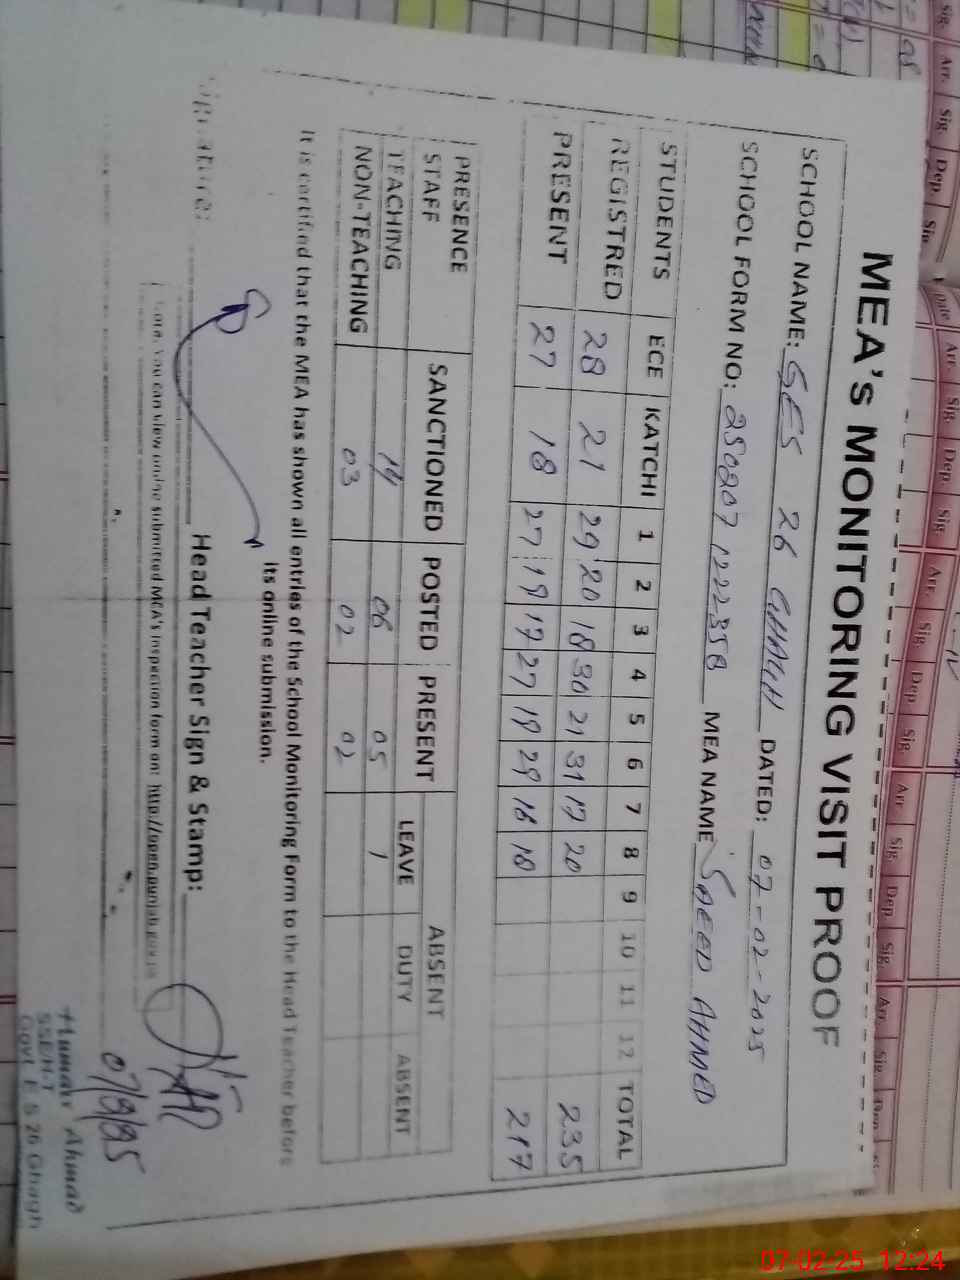 MEA'S MONITORING VISIT PROOF
SCHOOL NAME: GES 26 GHAGH DATED: 07-02-2025
SCHOOL FORM NO: MEA NAME SAEED AHMED
STUDENTS ECE KATCHI 1 2 3 4 5 6 7 8 9 10 11 12 TOTAL
REGISTRED 28 21 29 20 18 30 21 31 17 20 235
PRESENT 27 18 27 19 17 27 19 29 16 18 217
PRESENCE SANCTIONED POSTED PRESENT ABSENT
STAFF LEAVE DUTY ABSENT
TEACHING 14 06 05 1
NON-TEACHING 03 02 02
It is certified that the MEA has shown all entries of the School Monitoring Form to the Head Teacher before
its online submission.
Signature: Head Teacher Sign & Stamp:
You can view online submitted MEA's inspection form on: http://open.punjab.gov.pk
Ahmad
SSE/H-T
Govt. E.S 26 Ghagh
07-02-25 12:24